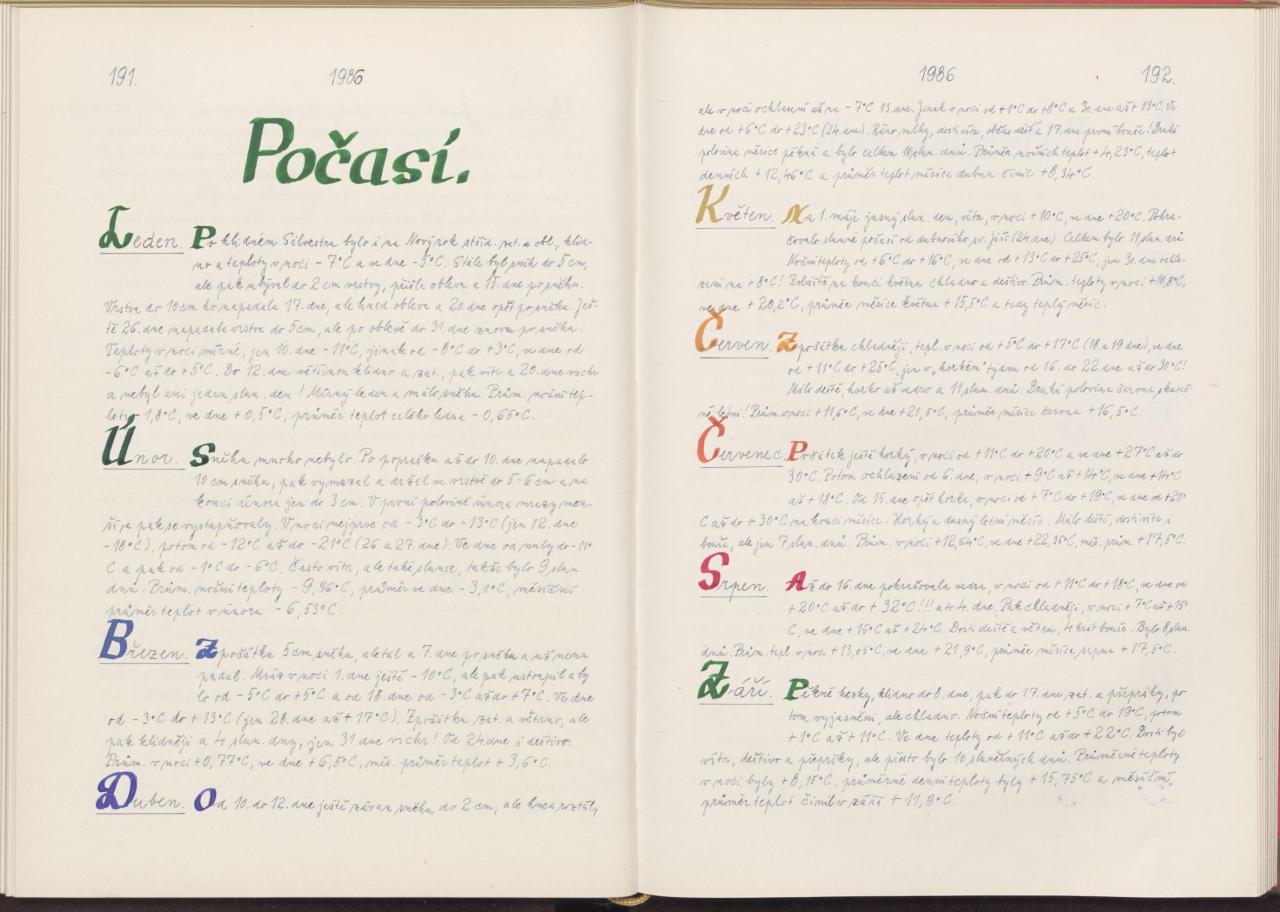 191.
1986
Počasí.
Leden. Po klidném Silvestru bylo i na Nový rok stříd. zat. a obl., klid-
no a teploty v noci - 7°C a ve dne - 5°C. Stále byl sníh do 5 cm,
ale pak ubýval do 2 cm vrstvy, přišla obleva a 15. dne po sněhu.
Vrstva do 10 cm ho napadala 17. dne, ale hned obleva a 20. dne opět po sněhu. Ješ-
tě 26. dne napadala vrstva do 5 cm, ale po oblevě do 31. dne znovu po sněhu.
Teploty v noci mírné, jen 10. dne - 11°C, jinak od - 8°C do +3°C, ve dne od
-6°C až do +5°C. Do 12. dne většinou klidno a zat., pak vítr a 20. dne vichr
a nebyl ani jeden slun. den! Mírný leden a málo sněhu. Prům. noční tep-
loty - 1,8°C, ve dne + 0,5°C, průměr teplot celého ledna - 0,65°C.
Únor. Sněhu mnoho nebylo. Po poprašku až do 10. dne napadalo
10 cm sněhu, pak vymazal a držel ve vrstvě do 5-6 cm a na
konci února jen do 3 cm. V první polovině února mrazy men-
ší a pak se vystupňovaly. V noci nejprve od - 3°C do - 13°C (jen 12. dne
-18°C), potom od - 12°C až do - 21°C (26. a 27. dne). Ve dne od nuly do -11°
C a pak od - 1°C do - 6°C. Často vítr, ale také slunce, takže bylo 9 slun.
dnů. Prům. noční teploty - 9,96°C, průměr ve dne - 3,1°C, měsíční
průměr teplot v únoru - 6,53°C.
Březen. Zpočátku 5 cm sněhu, ale tál a 7. dne po sněhu a už nena
padal. Mráz v noci 1. dne ještě - 10°C, ale pak ustoupil a by
lo od - 5°C do +5°C a od 18. dne od - 3°C až do +7°C. Ve dne
od - 3°C do + 13°C (jen 28. dne až + 17°C). Zpočátku zat. a větrno, ale
pak klidněji a 4 slun. dny, jen 31. dne vichr! Od 24. dne i deštivo.
Prům. v noci + 0,77°C, ve dne + 6,5°C, měs. průměr teplot + 3,6°C.
Duben. Od 10. do 12. dne ještě závan sněhu do 2 cm, ale hned roztál,
1986
192.
ale v noci ochlazení až na - 7°C 13. dne. Jinak v noci od +1°C do +8°C a 30. dne až + 13°C. Ve
dne od +6°C do +23°C (24. dne). Ráno mlhy, dosti větru, občas déšť a 17. dne první bouře! Druhá
polovina měsíce pěkná a bylo celkem 10 slun. dnů. Průměr nočních teplot + 4,23°C, teplot
denních + 12,46°C a průměr teplot měsíce dubna činil +8,34°C.
Květen. Na 1. máje jasný slun. den, vítr, v noci + 10°C, ve dne +20°C. Pokra-
čovalo slunné počasí od dubnového sv. Jiří (24. dne). Celkem bylo 11 slun. dnů.
Noční teploty od +6°C do +16°C, ve dne od +13°C do +25°C, jen 30. dne ochla-
zení na + 8°C! Zvláště na konci května chladno a deštivo. Prům. teploty v noci +10,8°C,
ve dne + 20,2°C, průměr měsíce května + 15,5°C a tedy teplý měsíc.
Červen. Zpočátku chladněji, tepl. v noci od +5°C do +17°C (18. a 19. dne), ve dne
od + 11°C do +25°C, jen v „horkém" týdnu od 16. do 22. dne až do 30°C!
Málo deště, horko až vedro a 11 slun. dnů. Druhá polovina června skuteč-
ně letní! Prům. v noci + 11,6°C, ve dne +21,5°C, průměr měsíce června + 16,5°C.
Červenec. Počátek ještě horký, v noci od + 11°C do +20°C a ve dne +27°C až do
30°C. Potom ochlazení od 6. dne, v noci + 9°C až +14°C, ve dne +14°C
až + 18°C. Od 15. dne opět horko, v noci od + 7°C do +19°C, ve dne od +20°
C až do + 30°C na konci měsíce. Horký a dusný letní měsíc. Málo deště, dosti větru i
bouře, ale jen 7 slun. dnů. Prům. v noci +12,64°C, ve dne +22,35°C, měs. prům. +17,5°C.
Srpen. Až do 16. dne pokračovala vedra, v noci od + 11°C do +18°C, ve dne od
+20°C až do + 32°C!!! a to 4. dne. Pak chladněji, v noci +7°C až +15°
C, ve dne +15°C až +24°C. Dosti deště a větru, 4 krát bouře. Bylo 8 slun.
dnů. Prům. tepl. v noci + 13,05°C, ve dne +21,9°C, průměr měsíce srpna + 17,5°C.
Září. Pěkně hezky, klidno do 8. dne, pak do 17. dne zat. a přepršky, po
tom vyjasnění, ale chladno. Noční teploty od +5°C do 19°C, potom
+1°C až + 11°C. Ve dne teploty od +11°C až do +22°C. Dosti bylo
větru, deštivo a přepršky, ale přesto bylo 10 slunečných dnů. Průměrné teploty
v noci byly +8,15°C, průměrné denní teploty byly + 15,75°C a měsíční
průměr teplot činil v září + 11,9°C.